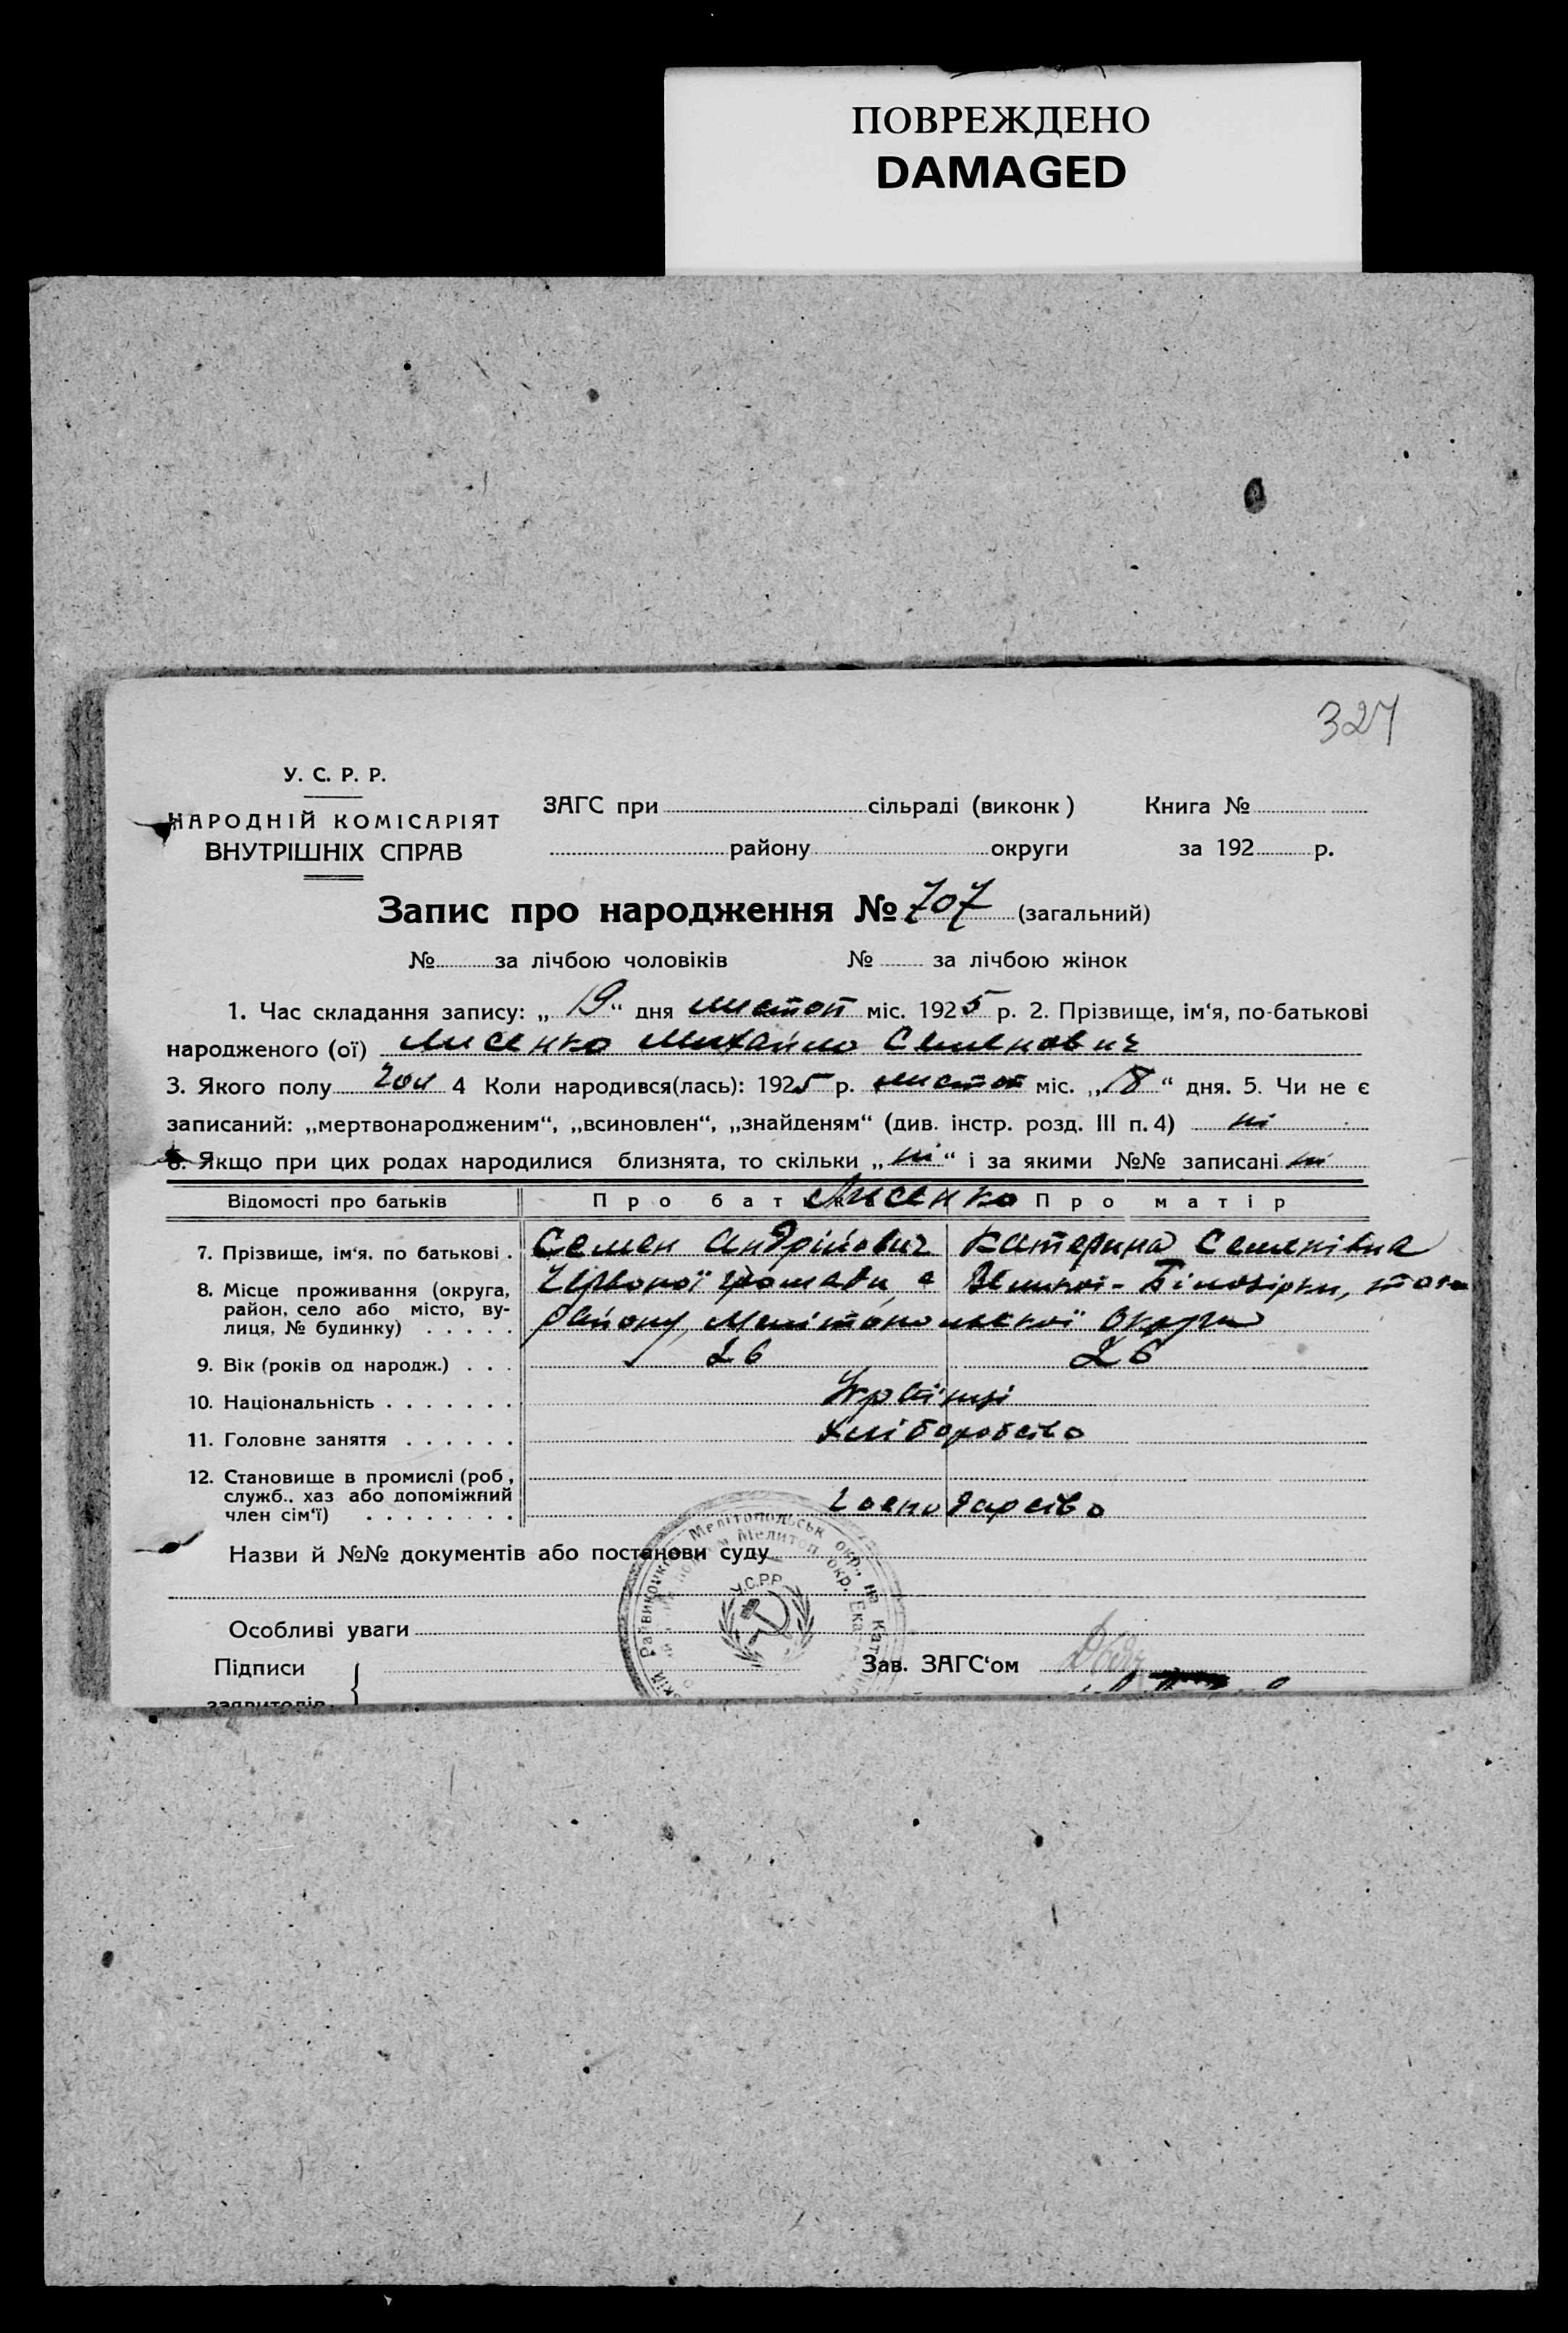 ПОВРЕЖДЕНО
DAMAGED
327
У. С. Р. Р.
НАРОДНІЙ КОМІСАРІЯТ
ВНУТРІШНІХ СПРАВ
ЗАГС при сільраді (виконк) Книга №
району округи за 192 р.
Запис про народження № 707 (загальний)
№ за лічбою чоловіків № за лічбою жінок
1. Час складання запису: „19“ дня листоп міс. 1925 р. 2. Прізвище, ім‘я, по-батькові
народженого (ої) Лисенко Михайло Семенович
3. Якого полу чол 4 Коли народився(лась): 1925 р. листоп міс. „18“ дня. 5. Чи не є
записаний: „мертвонародженим“, „всиновлен“, „знайденям“ (див. інстр. розд. III п. 4) ні
6. Якщо при цих родах народилися близнята, то скільки „ні“ і за якими №№ записані ні
Відомості про батьків Про бат Лисенко Про матір
7. Прізвище, ім‘я. по батькові . Семен Андрійович Катерина Семенівна
8. Місце проживання (округа, Червоної громади, с Великої-Білозірки, того
район, село або місто, ву-
лиця, № будинку) . . . . . району, Мелітопольської округи
9. Вік (років од народж.) . . . 26 26
10. Національність . . . . . . . Українці
11. Головне заняття . . . . . . Хліборобство
12. Становище в промислі (роб,
служб.. хаз або допоміжний
член сім‘ї) . . . . . . . . Господарство
Назви й №№ документів або постанови суду
Мелітопольськ окр., на Кат
Мелитоп окр. Ека
Райвиконком
У.С.Р.Р.
Особливі уваги
Підписи Зав. ЗАГС‘ом
заявителів